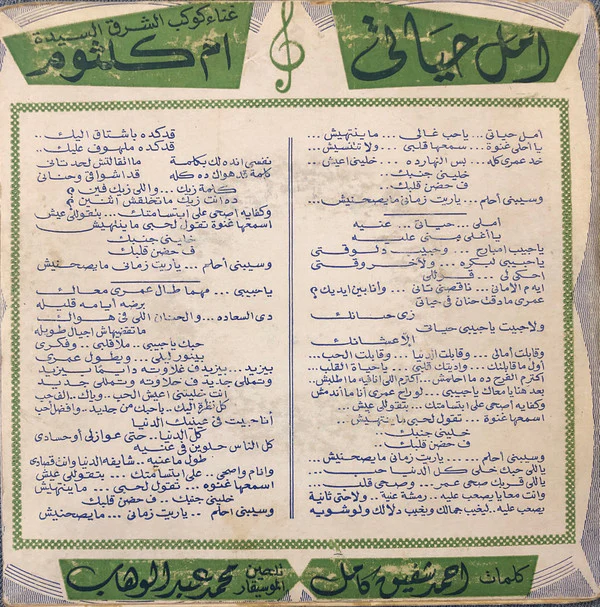 أمل حياتي
غناء كوكب الشرق السيدة
ام كلثوم
امل حياتي ... ياحب غالي ... ما ينتهيش ...
يا احلى غنوة ... سمعها قلبي ... ولا تنسيش ...
خد عمري كله ... بس النهارده ... خليني اعيش ...
خليني جنبك ..
ف حضن قلبك ..
وسيبني أحلم ... ياريت زماني ما يصحنيش ...
أملي ... حياتي ... عنيه
يا أغلى مني عليه
ياحبيب امبارح ... وحبيب دلوقتي
يا حبيبي لبكره ... ولآخر وقتي
احكي لي ... قول لي
ايه م الأماني ... ناقصني تاني ... وانا بين ايديك ؟
عمري ما دقت حنان في حياتي
زي حنانك
ولا حبيت يا حبيبي حياتي
إلا عشانك
وقابلت أمالي ... وقابلت الدنيا ... وقابلت الحب ...
أول ما قابلتك ... واديتك قلبي ... يا حياة القلب ...
اكتر م الفرح ده ما احلمش ... اكتر م اللي انا فيه ما اطلبش
بعد هنايا معاك يا حبيبي ... لو راح عمري أنا ما اندمش
وكفايه أصحى على ابتسامتك ... بتقول لي عيش ...
اسمعها غنوة ... تقول لحبي ما ينتهيش ...
خليني جنبك ..
ف حضن قلبك ..
وسيبني أحلم ... ياريت زماني ما يصحنيش ...
ياللي حبك خلى كل الدنيا حب ...
ياللي قربك صحى عمر ... وصحى قلب ...
وانت معايا يصعب عليه .. رمشة عنيه .. ولا حتى ثانية
يصعب عليه .. ليغيب جمالك ويغيب دلالك ولو شويه
قد كده باشتاق اليك ..
قد كده ملهوف عليك ..
نفسي انده لك بكلمة ما اتقالتش لحد تاني
كلمة قد هواك ده كله قد أشواقي وحناني
كلمة زيك ... واللي زيك فين ؟
ده انت زيك ما تخلقش اثنين ؟
وكفايه اصحى على ابتسامتك ... بتقول لي عيش
اسمعها غنوة تقول لحبي ما ينتهيش
خليني جنبك
ف حضن قلبك
وسيبني أحلم ... ياريت زماني ما يصحنيش
يا حبيبي ... مهما طال عمري معاك
برضه أيامه قليله
دي السعاده ... والحنان اللي في هواك
ما تقضيهاش اجيال طويله
حبك يا حبيبي .. ملا قلبي .. وفكري
بينور ليلي ... ويطول عمري
بيزيد ... بيزيد ف غلاوته دايما بيزيد
وتمللي جديد ف حلاوته وتمللي جديد
انت خليتني اعيش الحب .. وياك .. الف حب
كل نظرة اليك .. باحبك من جديد .. وافضل احب
أنا حبيت في عينيك الدنيا
كل الدنيا .. حتى عوازلي أو حسادي
كل الناس حلوين في عنيه
طول ما عنيه ... شايفه الدنيا وانت قصادي
وانام واصحى .. على ابتسامتك .. بتقول لي عيش
اسمعها غنوه .. تقول لحبي .. ما ينتهيش
خليني جنبك .. ف حضن قلبك
وسيبني أحلم .. ياريت زماني ... ما يصحنيش
كلمات احمد شفيق كامل
تلحين الموسيقار محمد عبد الوهاب